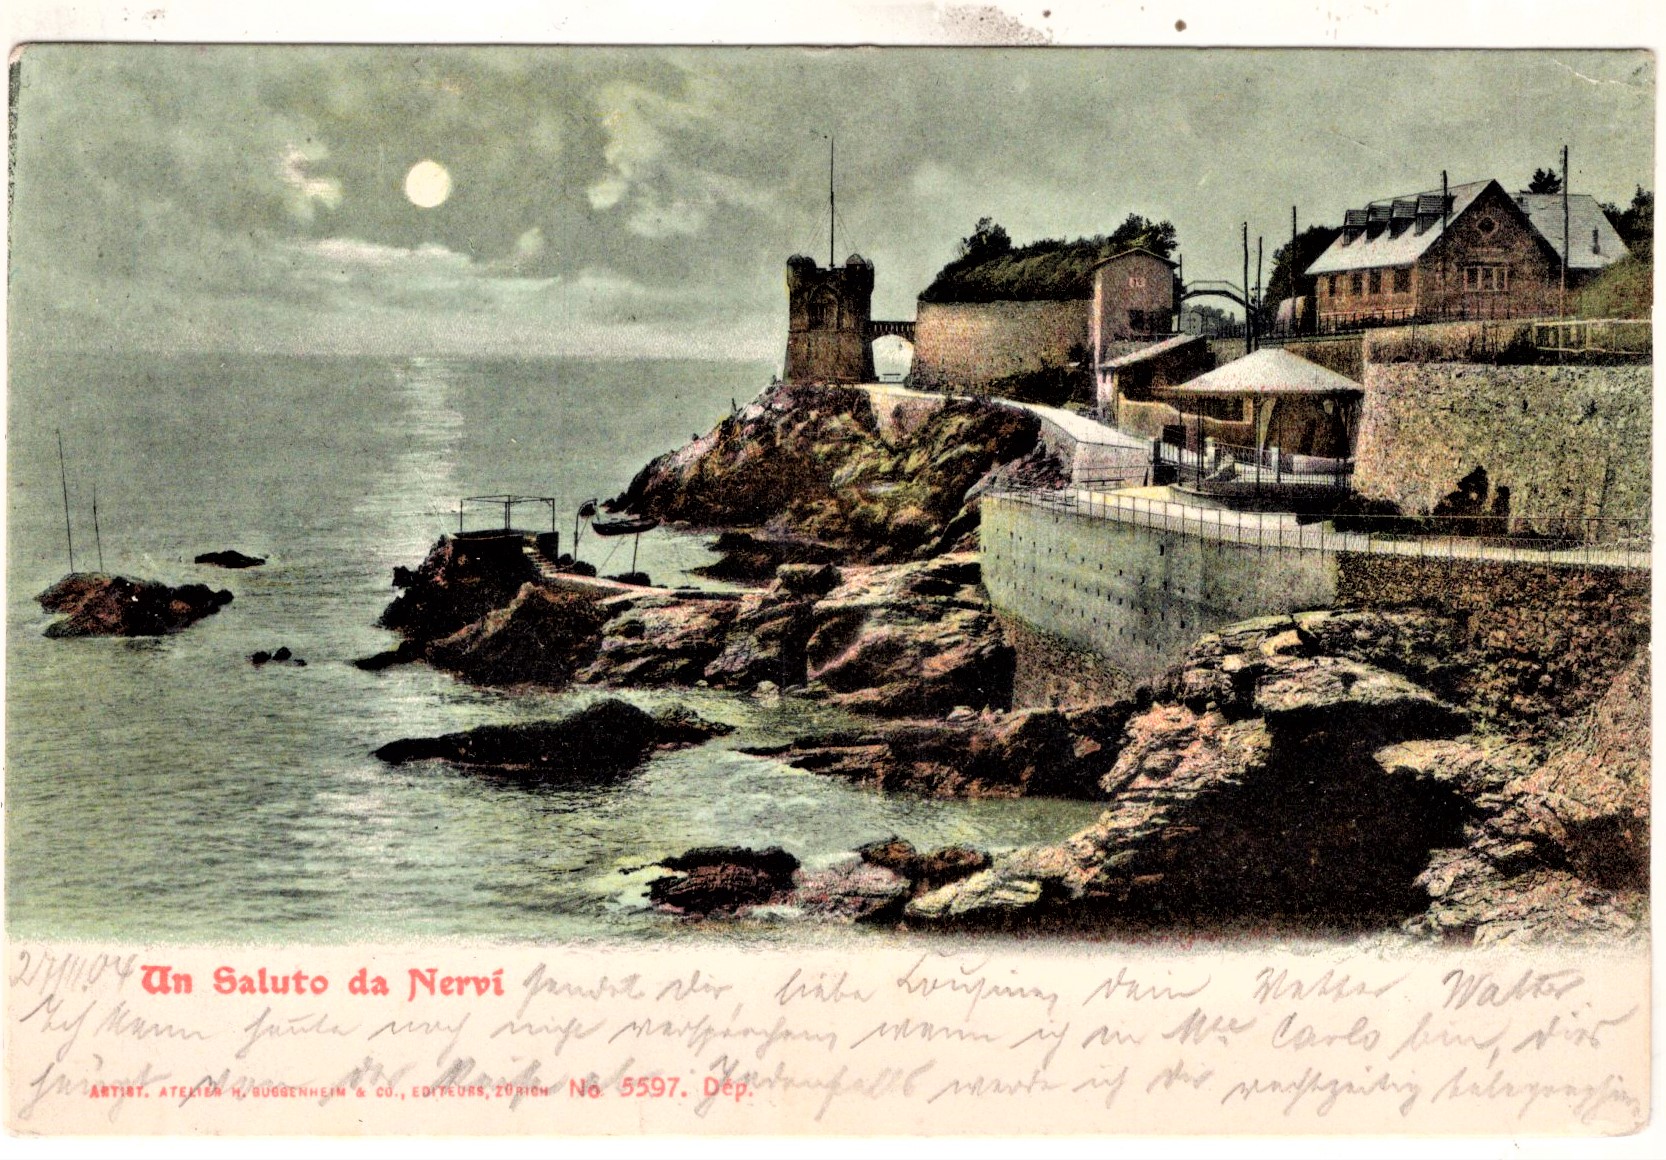 27/II.04 Un Saluto da Nervi sendet Dir, liebe Cousine, dein Vetter Walter.
Ich kann heute noch nicht versprechen, wann ich in Mte Carlo bin, dies
hängt von der Reise ab. Jedenfalls werde ich Dir rechtzeitig telegraphieren
ARTIST. ATELIER H. GUGGENHEIM & CO., EDITEURS, ZÜRICH No. 5597. Dép.